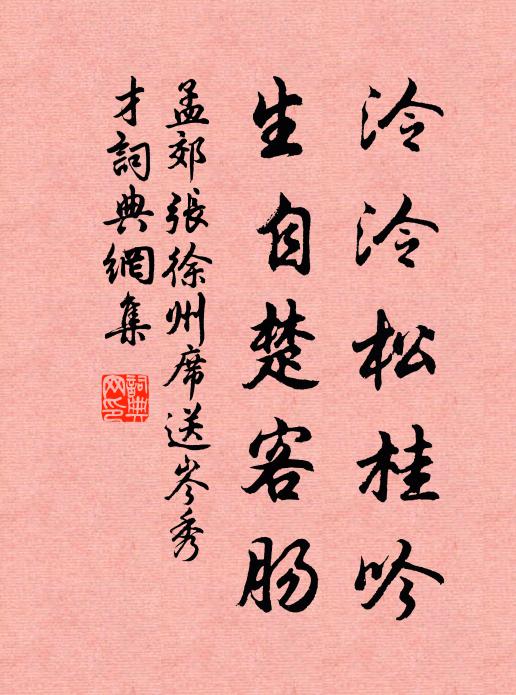 泠泠松桂吟
生自楚客肠
孟郊張徐州席送岑秀
才詞典網集
詞典網印